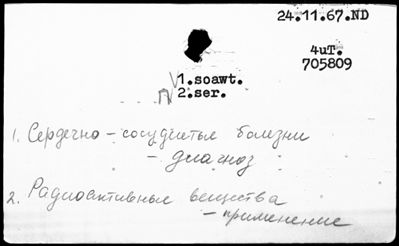 24.11.67.ND
4uT.
705809
1.soawt.
2.ser.
1. Сердечно-сосудистые болезни
- диагноз
2. Радиоактивные вещества
- применение